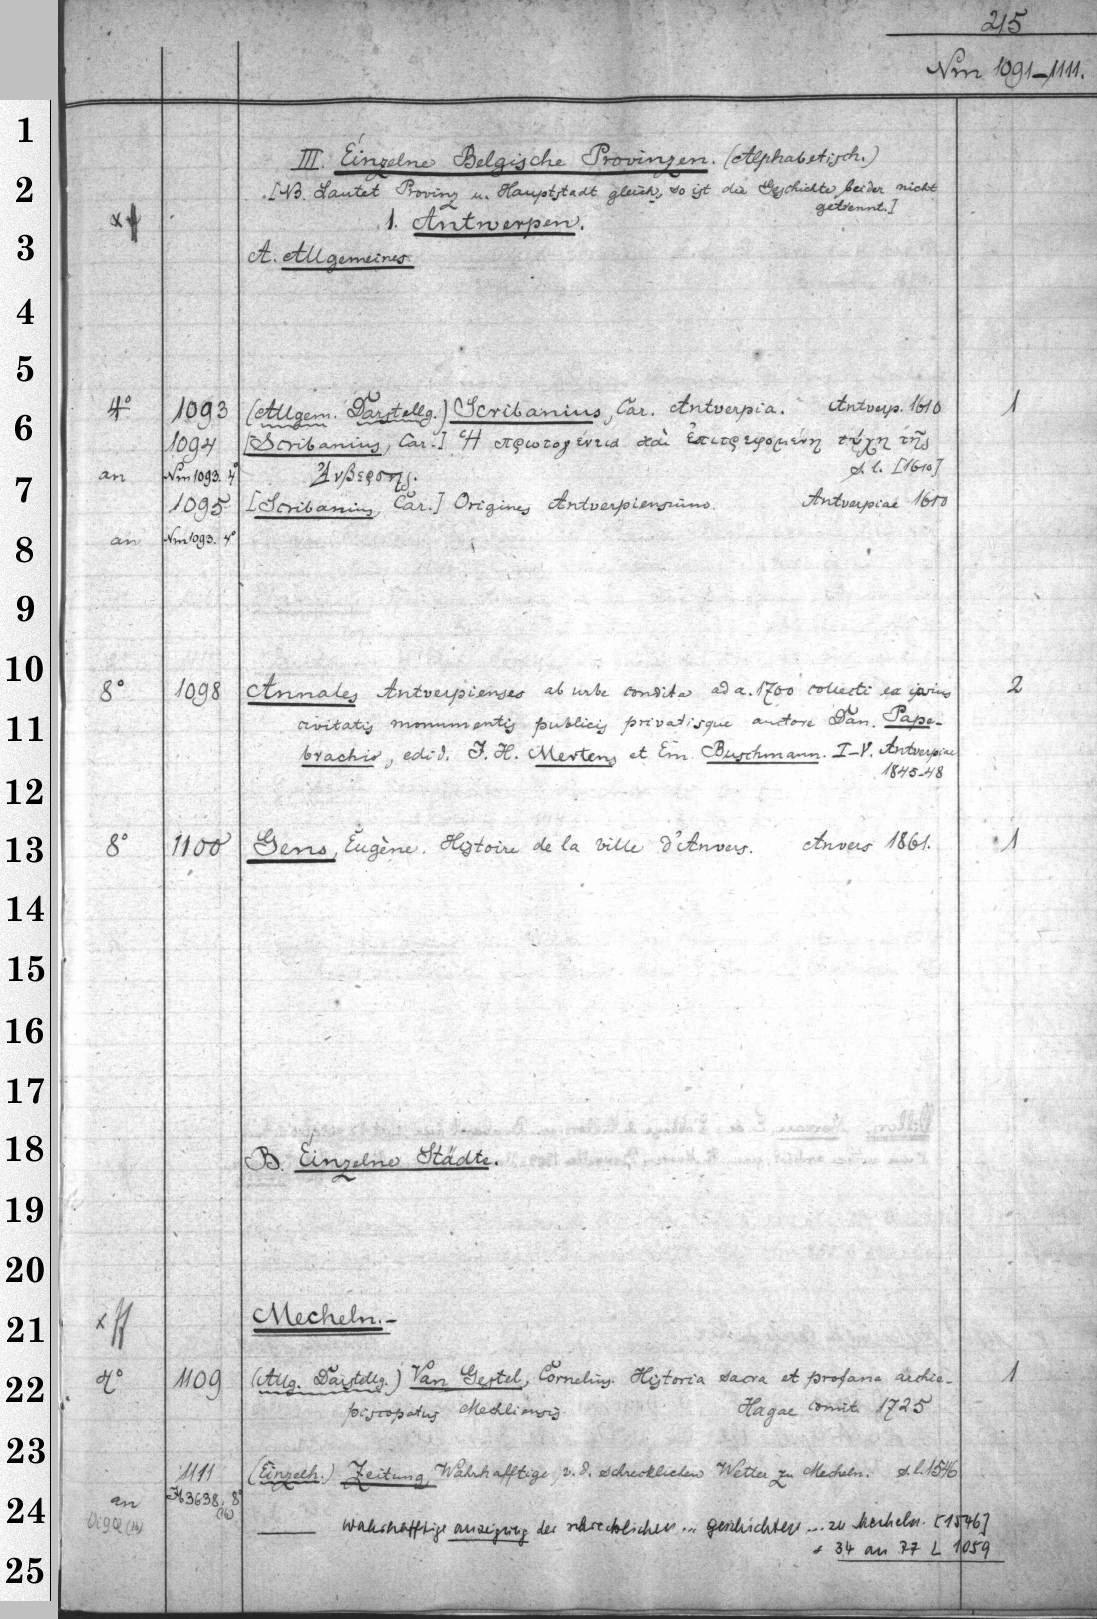 215
Nm 1091-1111.
III. Einzelne Belgische Provinzen. (Alphabetisch.)
[NB. Lautet Provinz u. Hauptstadt gleich, so ist die Geschichte beider nicht
getrennt.]
1. Antwerpen.
A. Allgemeines.
4° 1093 (Allgem. Darstellg.) Scribanius, Car. Antverpia. Antverp. 1610 1
1094 [Scribanius, Car.] Ἡ πρωτογένεια καὶ ἐπιτρεφομένη τύχη τῆς
an Nm 1093. 4° Ἀνβερσης. s. l. [1610]
1095 [Scribanius, Car.] Origines Antverpiensium. Antverpiae 1610
an Nm 1093. 4°
8° 1098 Annales Antverpienses ab urbe condita ad a. 1700 collecti ex ipsius 2
civitatis monumentis publicis privatisque auctore Dan. Pape-
brochio, edid. F. H. Mertens et Em. Buschmann. I-V. Antverpiae
1845-48
8° 1100 Gens, Eugène. Histoire de la ville d'Anvers. Anvers 1861. 1
B. Einzelne Städte.
Mecheln.-
4° 1109 (Allg. Darstellg.) Van Gestel, Cornelius. Historia sacra et profana archie- 1
piscopatus Mechliensis Hagae comit. 1725
1111 (Einzelh.) Zeitung, Wahrhafftige, v. d. schrecklichen Wetter zu Mecheln. s. l. 1546
an 3638. 8°
(16)
Wahrhafftige anzeigung der schrecklichen ... geschichten ... zu Mecheln. [1546]
34 an 77 L 1059
1
2
3
4
5
6
7
8
9
10
11
12
13
14
15
16
17
18
19
20
21
22
23
24
25